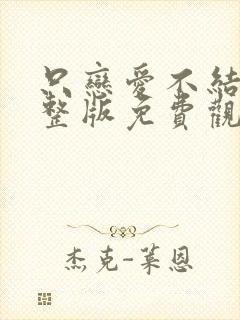 只戀愛不結
整版免費觀
杰克-萊恩